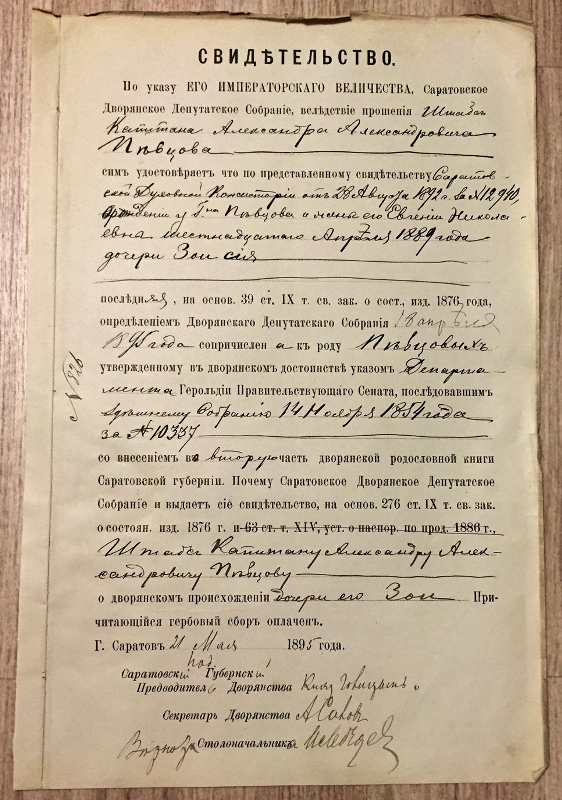 СВИДѢТЕЛЬСТВО.
По указу ЕГО ИМПЕРАТОРСКАГО ВЕЛИЧЕСТВА, Саратовское
Дворянское Депутатское Собраніе, вслѣдствіе прошенія Штабсъ
Капитана Александра Александровича
Пѣвцова
симъ удостовѣряетъ что по представленному свидѣтельству Саратов-
ской Духовной Консисторіи отъ 28 Августа 1892 г. за № 12940,
о рожденіи у Г-на Пѣвцова и жены его Евгеніи Никола-
евны шестнадцатаго Апрѣля 1889 года
дочери Зои сія
послѣдняя, на основ. 39 ст. IX т. св. зак. о сост., изд. 1876 года,
опредѣленіемъ Дворянскаго Депутатскаго Собранія 18 апрѣля
1895 года сопричислен а къ роду Пѣвцовыхъ
утвержденному въ дворянскомъ достоинствѣ указомъ Департа-
мента Герольдіи Правительствующаго Сената, послѣдовавшимъ
здѣшнему Собранію 14 Ноября 1854 года
за № 10337
№ 826
со внесеніемъ въ вторую часть дворянской родословной книги
Саратовской губерніи. Почему Саратовское Дворянское Депутатское
Собраніе и выдаетъ сіе свидѣтельство, на основ. 276 ст. IX т. св. зак.
о состоян. изд. 1876 г. и 63 ст. т. XIV, уст. о наспор. по прод. 1886 г.,
Штабсъ Капитану Александру Алек-
сандровичу Пѣвцову
о дворянскомъ происхожденіи дочери его Зои При-
читающійся гербовый сборъ оплаченъ.
Г. Саратовъ 21 Мая 1895 года.
Саратовскій Губернскій
Предводитель Дворянства Князь Голицынъ
Секретарь Дворянства
Столоначальника